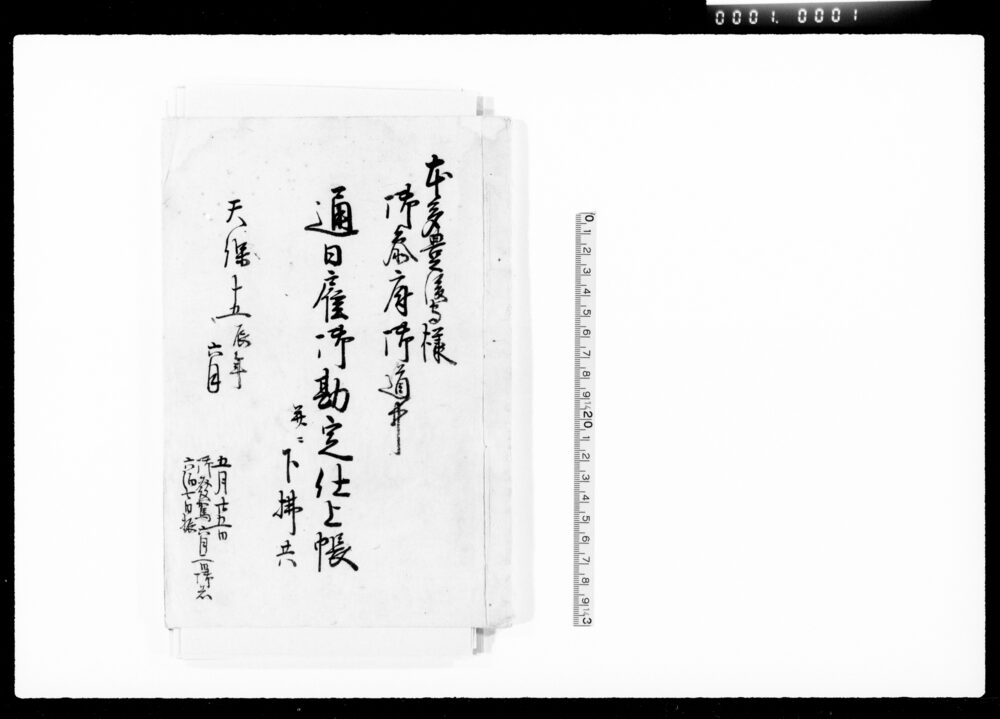 0001. 0001
本多豊後守様
御参府御道中
通日雇御勘定仕上帳
並ニ下払共
天保十五辰年
六月
五月廿五日
御発駕六月一日御着
六泊七日振
0 1 2 3 4 5 6 7 8 9 20 1 2 3 4 5 6 7 8 9 3